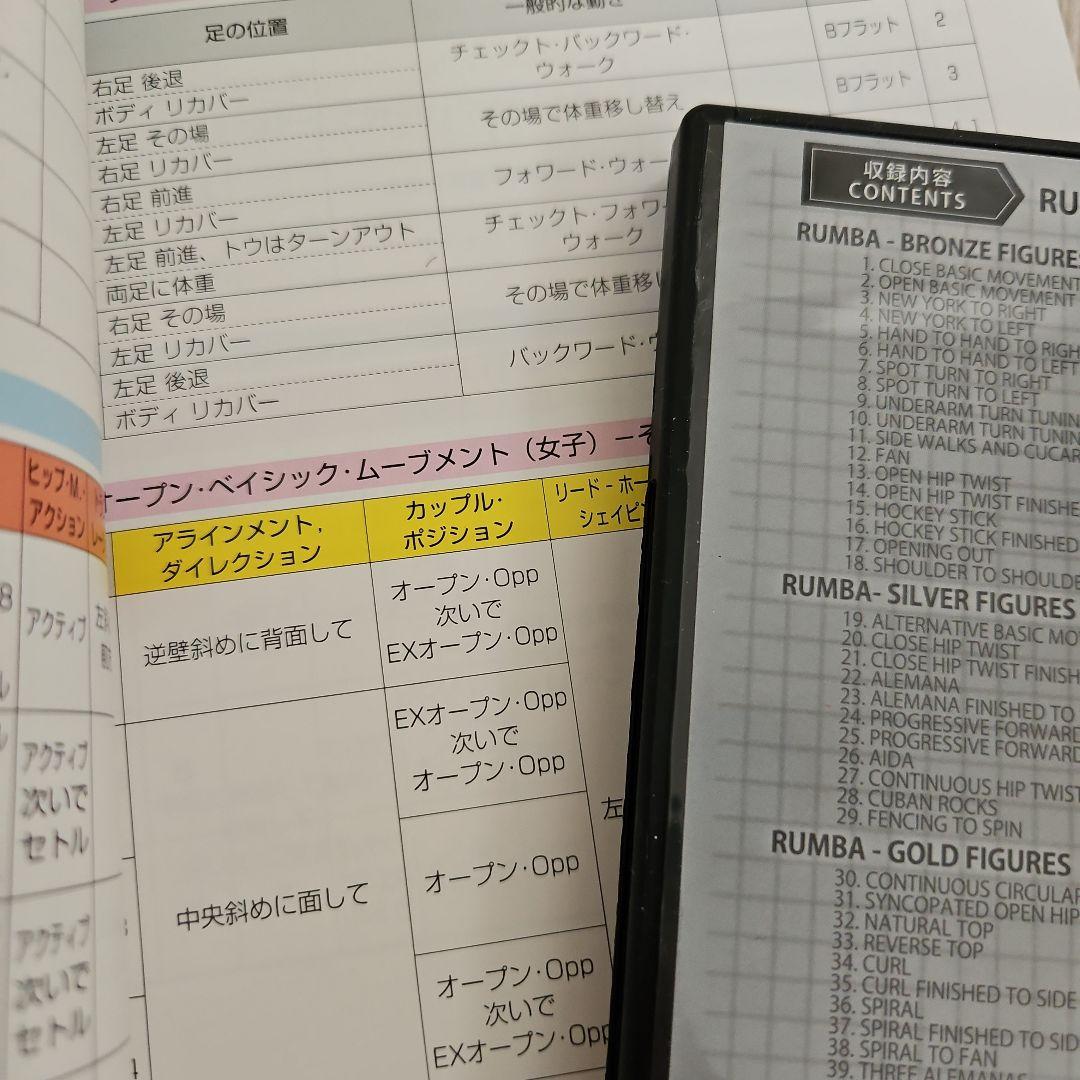 足の位置
一般的な動き
右足 後退
ボディ リカバー
左足 その場
右足 リカバー
右足 前進
左足 リカバー
左足 前進、トウはターンアウト
両足に体重
右足 その場
左足 リカバー
左足 後退
ボディ リカバー
チェックト・バックワード・
ウォーク
その場で体重移し替え
フォワード・ウォー
チェックト・フォワ
ウォーク
その場で体重移し
バックワード・
Bフラット
2
Bフラット
3
オープン・ベイシック・ムーブメント（女子）－そ
ヒップ・M.・
アクション
アラインメント,
ダイレクション
カップル・
ポジション
リード - ホー
シェイピン
8
アクティブ
アクティブ
次いで
セトル
アクティブ
次いで
セトル
逆壁斜めに背面して
中央斜めに面して
オープン・Opp
次いで
EXオープン・Opp
EXオープン・Opp
次いで
オープン・Opp
オープン・Opp
オープン・Opp
次いで
EXオープン・Opp
左
収録内容
CONTENTS
RU
RUMBA - BRONZE FIGURES
1. CLOSE BASIC MOVEMENT
2. OPEN BASIC MOVEMENT
3. NEW YORK TO RIGHT
4. NEW YORK TO LEFT
5. HAND TO HAND TO RIGH
6. HAND TO HAND TO LEFT
7. SPOT TURN TO RIGHT
8. SPOT TURN TO LEFT
9. UNDERARM TURN TUNING
10. UNDERARM TURN TUNIN
11. SIDE WALKS AND CUCAR
12. FAN
13. OPEN HIP TWIST
14. OPEN HIP TWIST FINISHE
15. HOCKEY STICK
16. HOCKEY STICK FINISHED
17. OPENING OUT
18. SHOULDER TO SHOULDE
RUMBA- SILVER FIGURES
19. ALTERNATIVE BASIC MO
20. CLOSE HIP TWIST
21. CLOSE HIP TWIST FINISH
22. ALEMANA
23. ALEMANA FINISHED TO
24. PROGRESSIVE FORWARD
25. PROGRESSIVE FORWARD
26. AIDA
27. CONTINUOUS HIP TWIST
28. CUBAN ROCKS
29. FENCING TO SPIN
RUMBA - GOLD FIGURES
30. CONTINUOUS CIRCULAR
31. SYNCOPATED OPEN HIP
32. NATURAL TOP
33. REVERSE TOP
34. CURL
35. CURL FINISHED TO SIDE
36. SPIRAL
37. SPIRAL FINISHED TO SID
38. SPIRAL TO FAN
39. THREE ALEMANAS